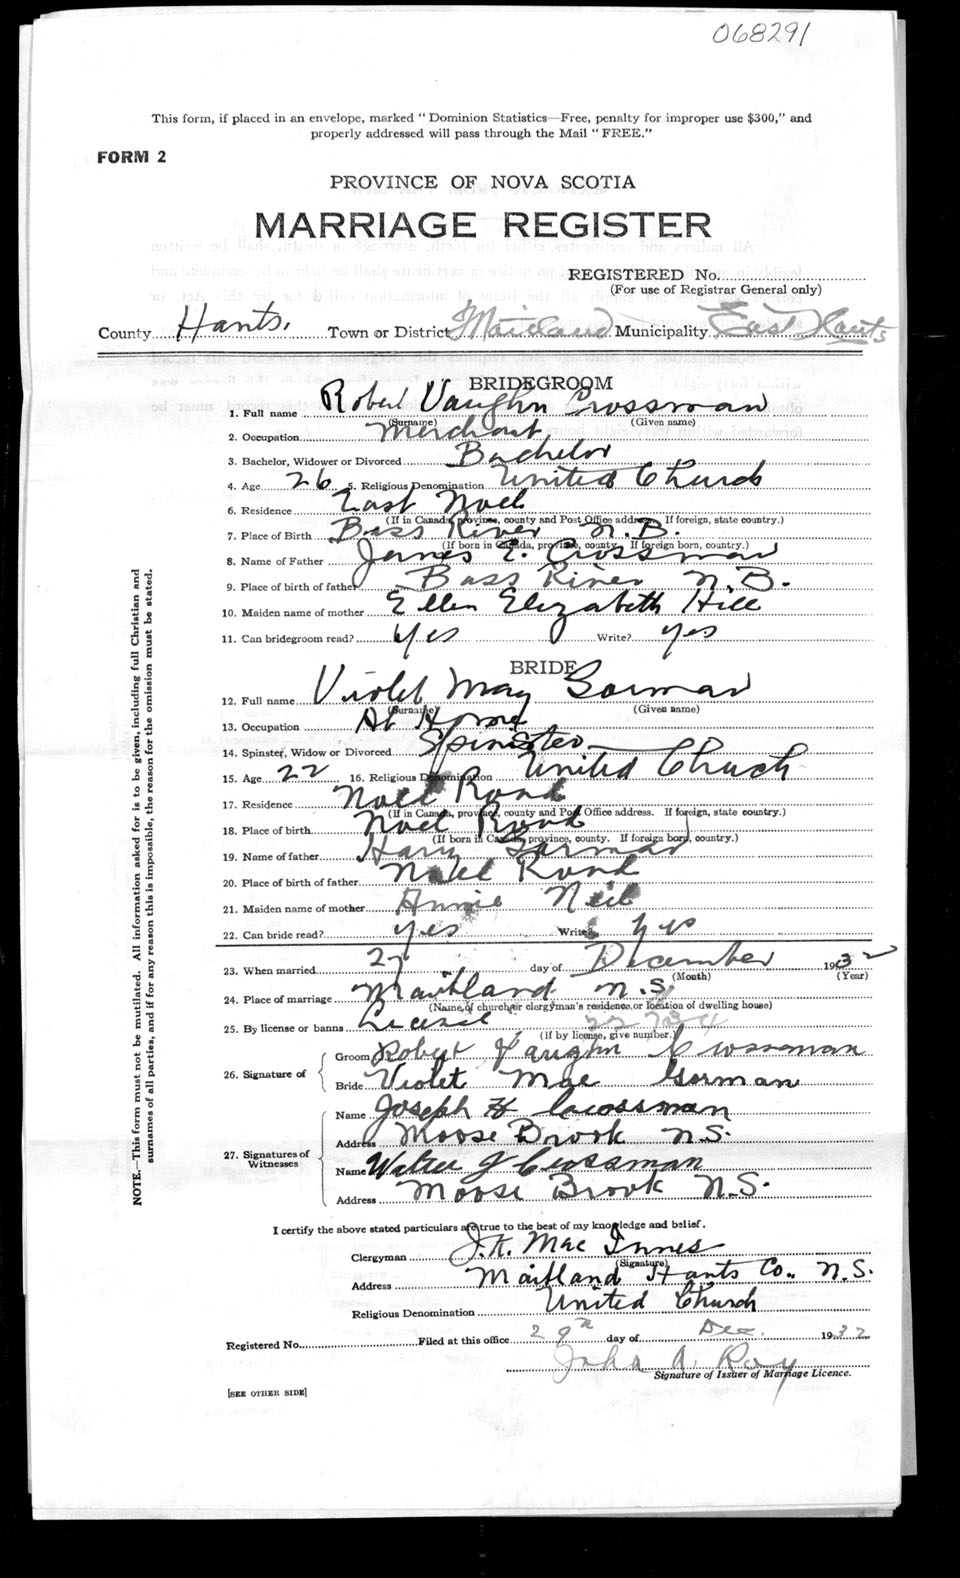 068291
This form, if placed in an envelope, marked "Dominion Statistics—Free, penalty for improper use $300," and
properly addressed will pass through the Mail "FREE."
FORM 2
PROVINCE OF NOVA SCOTIA
MARRIAGE REGISTER
REGISTERED No.
(For use of Registrar General only)
County Hants. Town or District Maitland Municipality East Hants
BRIDEGROOM
1. Full name Robert Vaughn Crossman
(Surname) (Given name)
2. Occupation Merchant
3. Bachelor, Widower or Divorced Bachelor
4. Age 26 5. Religious Denomination United Church
6. Residence East Noel
(If in Canada, province, county and Post Office address. If foreign, state country.)
7. Place of Birth Bass River N.B.
(If born in Canada, province, county. If foreign born, country.)
8. Name of Father James E. Crossman
9. Place of birth of father Bass River N.B.
10. Maiden name of mother Ellen Elizabeth Hill
11. Can bridegroom read? Yes Write? Yes
BRIDE
12. Full name Violet May Gorman
(Surname) (Given name)
13. Occupation At Home
14. Spinster, Widow or Divorced Spinster
15. Age 22 16. Religious Denomination United Church
17. Residence Noel Road
(If in Canada, province, county and Post Office address. If foreign, state country.)
18. Place of birth Noel Road
(If born in Canada, province, county. If foreign born, country.)
19. Name of father Harry Gorman
20. Place of birth of father Noel Road
21. Maiden name of mother Annie Neil
22. Can bride read? Yes Write? Yes
23. When married 27 day of December 1932
(Month) (Year)
24. Place of marriage Maitland N.S.
(Name of church or clergyman's residence or location of dwelling house)
25. By license or banns License
(If by license, give number.)
26. Signature of Groom Robert Vaughn Crossman
Bride Violet Mae Gorman
27. Signatures of Witnesses Name Joseph H Crossman
Address Moose Brook N.S.
Name Walter J Crossman
Address Moose Brook N.S.
I certify the above stated particulars are true to the best of my knowledge and belief.
Clergyman J.K. MacInnes
(Signature)
Address Maitland Hants Co., N.S.
Religious Denomination United Church
Registered No. Filed at this office 29th day of Dec. 1932
John A. Roy
Signature of Issuer of Marriage Licence.
[SEE OTHER SIDE]
NOTE.—This form must not be mutilated. All information asked for is to be given, including full Christian and
surnames of all parties, and if for any reason this is impossible, the reason for the omission must be stated.